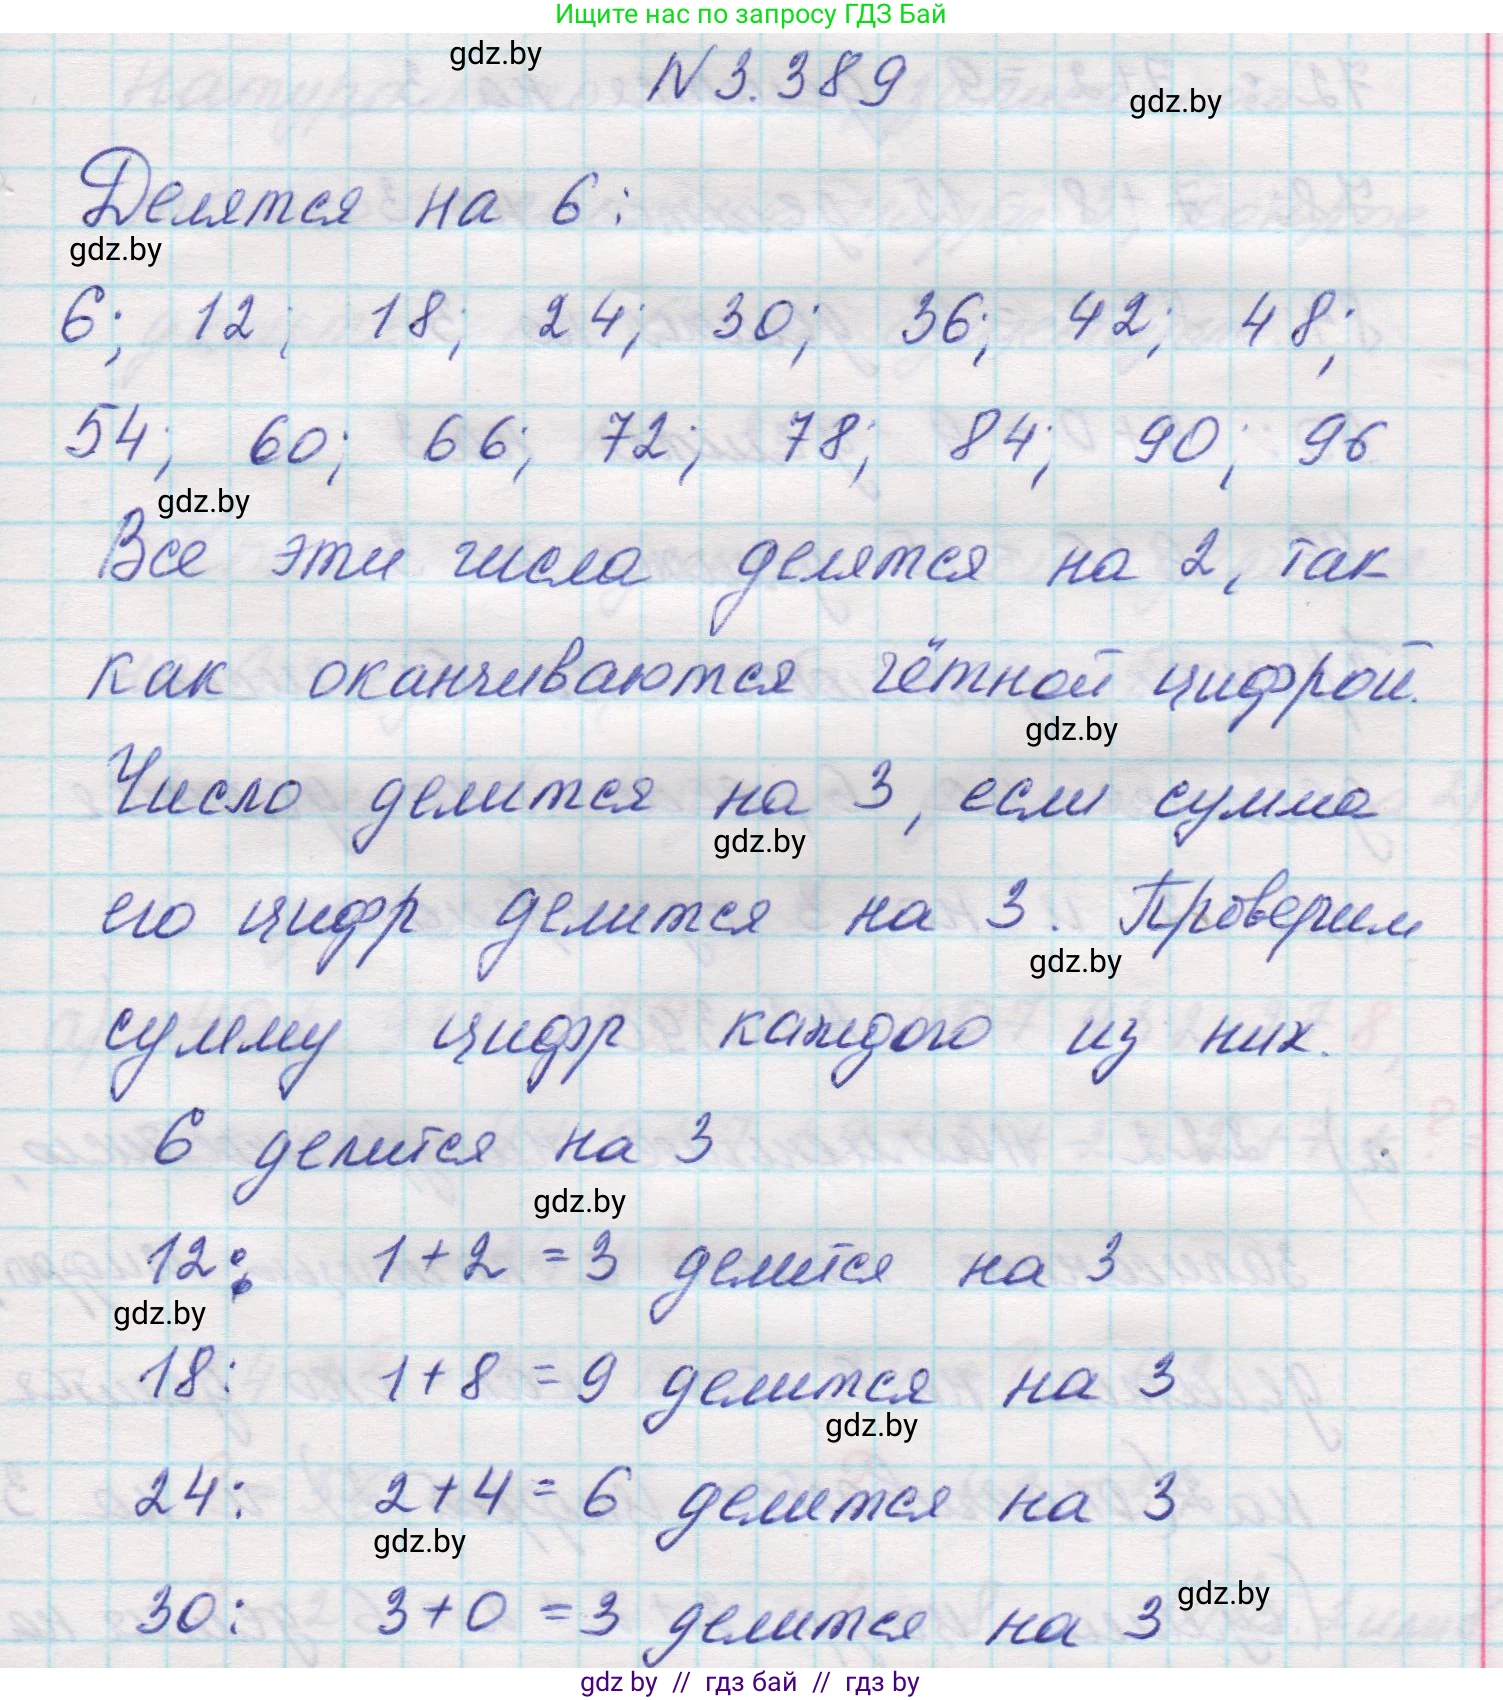 Ищите нас по запросу ГДЗ Бай
gdz.by
N 3.389
gdz.by
Делятся на 6:
gdz.by
6; 12; 18; 24; 30; 36; 42; 48;
54; 60; 66; 72; 78; 84; 90; 96
gdz.by
Все эти числа делятся на 2, так
как оканчиваются чётной цифрой.
gdz.by
Число делится на 3, если сумма
gdz.by
его цифр делится на 3. Проверим
gdz.by
сумму цифр каждого из них.
6 делится на 3
gdz.by
12: 1+2 = 3 делится на 3
gdz.by
18: 1+8 = 9 делится на 3
gdz.by
24: 2+4 = 6 делится на 3
gdz.by
30: 3+0 = 3 делится на 3
gdz.by
gdz by // гдз бай // гдз by